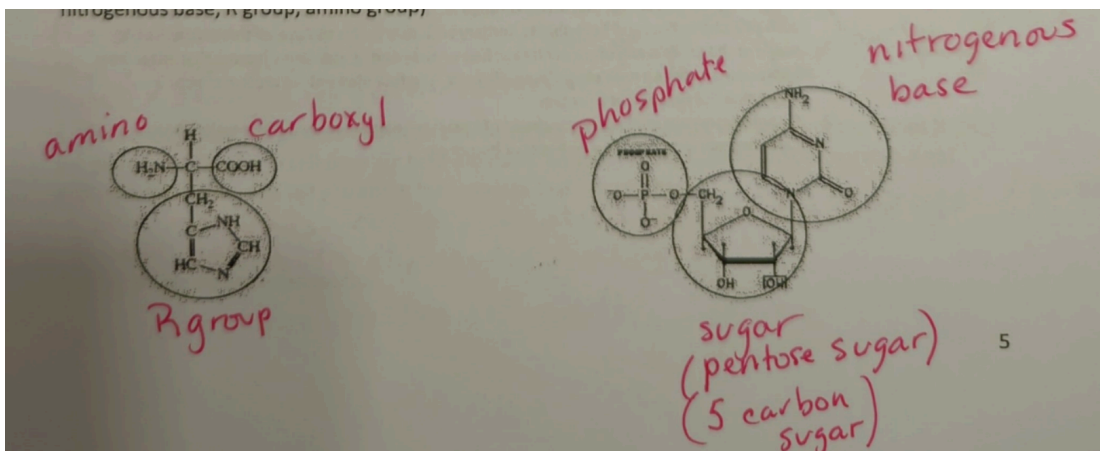 nitrogenous base, R group, amino group)
amino
carboxyl
H
H₂N C COOH
CH₂
C NH
CH
HC N
R group
phosphate
nitrogenous
base
PHOSPHATE
O
⁻O P O CH₂
O⁻
NH₂
N
N O
O
OH OH
sugar
(pentose sugar)
(5 carbon
sugar)
5